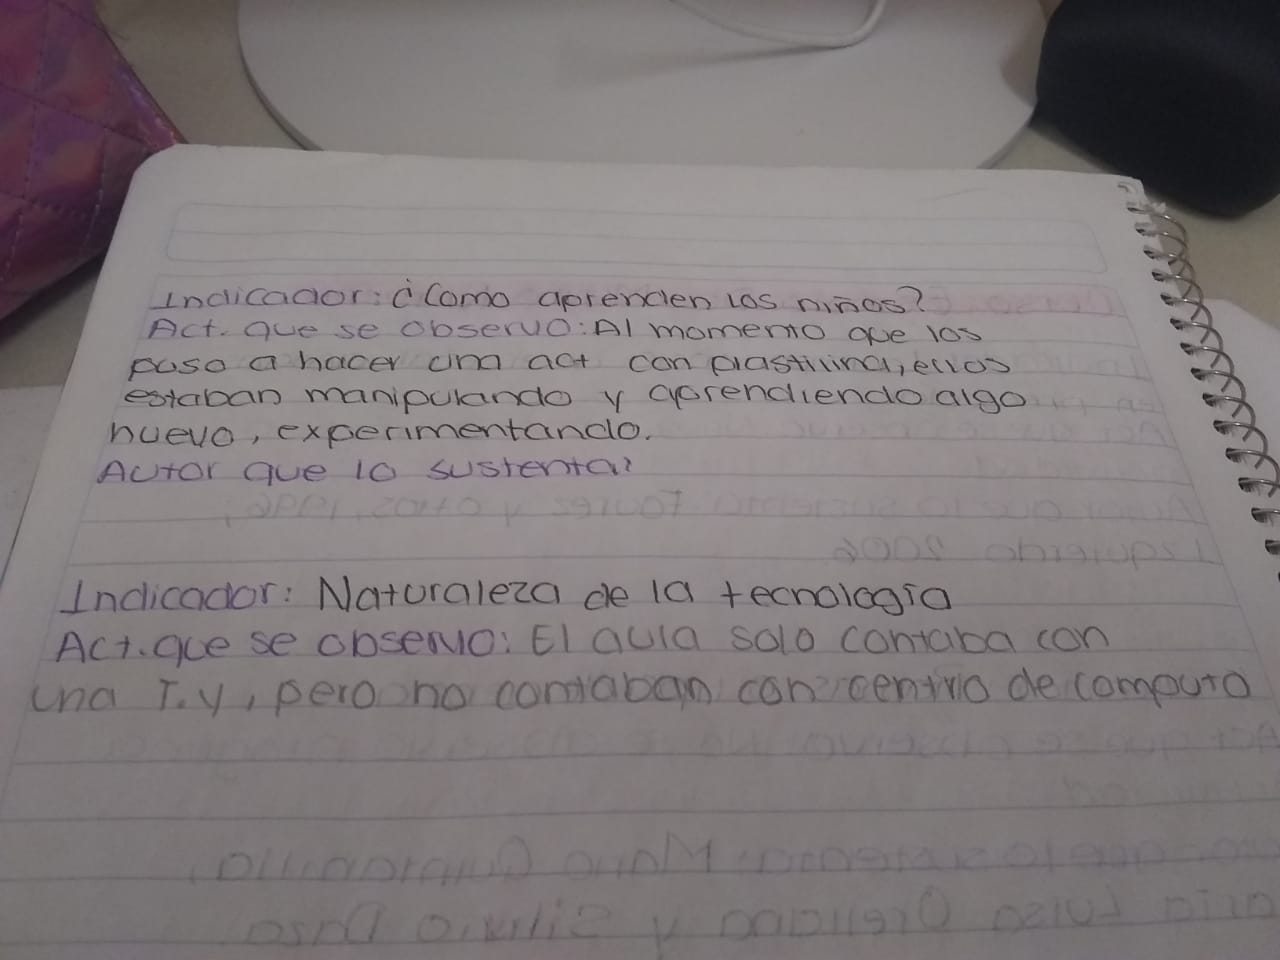 Indicador: ¿Como aprenden los niños?
Act. que se observo: Al momento que los
puso a hacer una act con plastilina, ellos
estaban manipulando y aprendiendo algo
nuevo, experimentando.
Autor que lo sustenta:
Indicador: Naturaleza de la tecnología
Act. que se observo: El aula solo contaba con
una T.v, pero no contaban con centro de computo